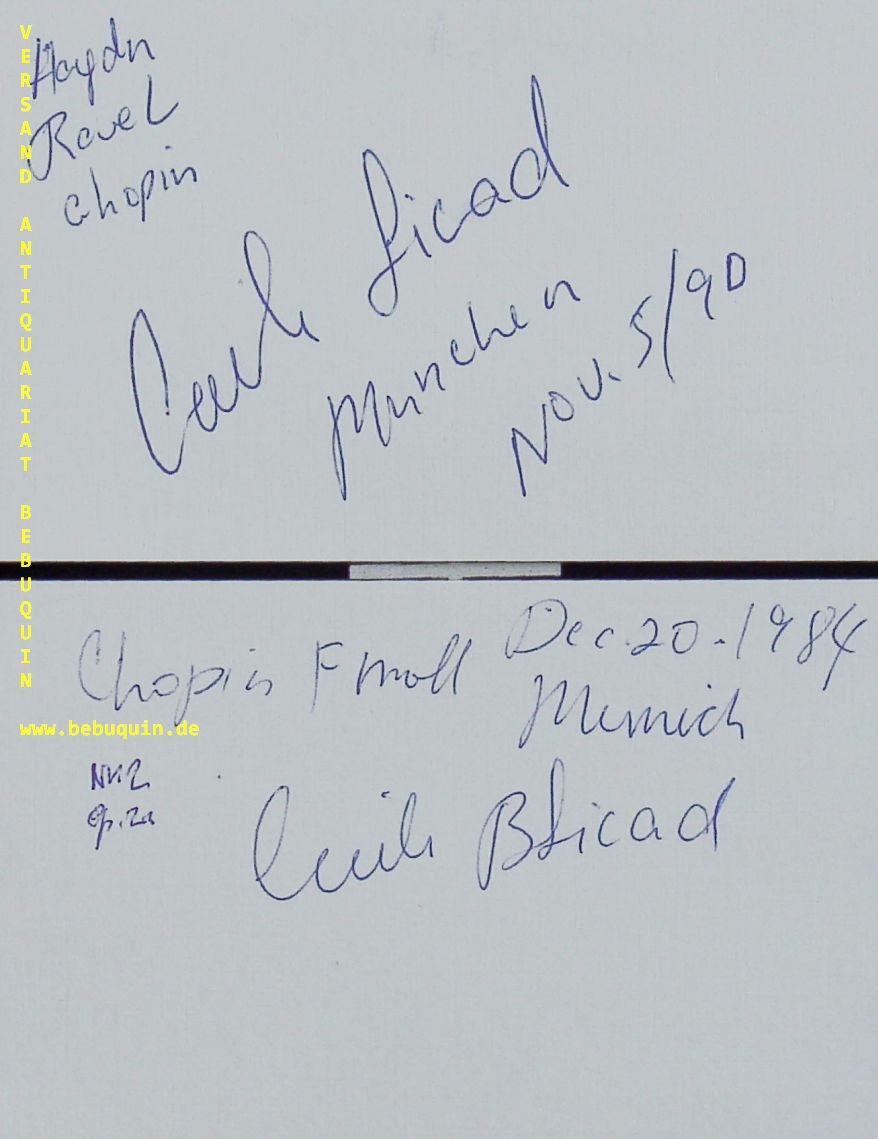 VERSAND ANTIQUARIAT BEBUQUIN
www.bebuquin.de
Haydn
Ravel
Chopin
Cecile Licad
München
Nov. 5/90
Chopin F moll Dec. 20. 1984
Munich
Nr. 2
Op. 21
Cecile B Licad